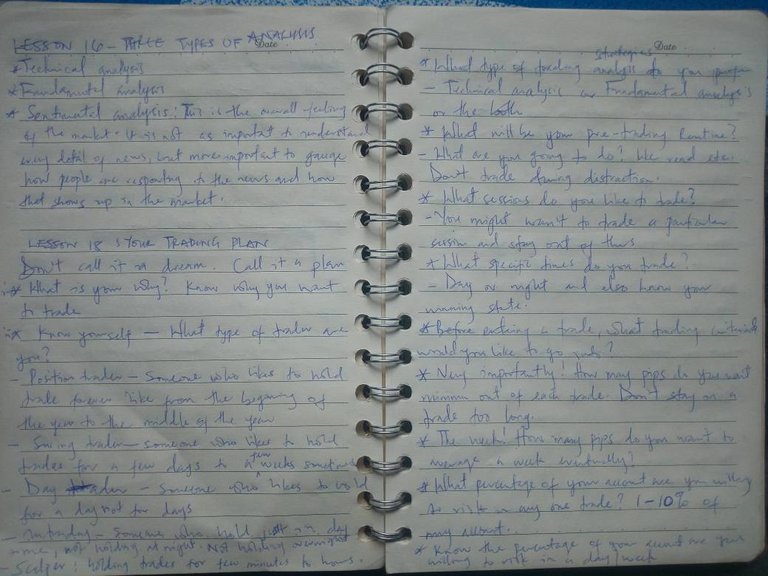 LESSON 16 - THREE TYPES OF ANALYSIS
Date
* Technical analysis
* Fundamental analysis
* Sentimental analysis: This is the overall feeling
of the market. It is not as important to understand
every detail of news, but more important to gauge
how people are responding to the news and how
that shows up in the market.
LESSON 18 : YOUR TRADING PLAN
Don't call it a dream. Call it a plan
* What is your why? Know why you want
to trade
* Know yourself - What type of trader are
you?
- Position trader - Someone who likes to hold
trade forever like from the beginning of
the year to the middle of the year
- Swing trader - someone who likes to hold
trades for a few days to a few weeks sometimes
- Day trader - someone who likes to hold
for a day not for days
- Intraday - Someone who hold just in day
time, not holding at night. Not holding overnight
- Scalper : holding trades for few minutes to hours.
Date
strategies
* What type of trading analysis do you
- Technical analysis or Fundamental analysis
or the both
* What will be your pre-trading Routine?
- What are you going to do? We read etc.
Don't trade during distraction.
* What sessions do you like to trade?
- You might want to trade a particular
session and stay out of
* What specific times do you trade?
- Day or night and also know your
state.
* Before entering a trade, what trading criteria
would you like to go
* Very importantly! How many pips do you want
minimum out of each trade. Don't stay on a
trade too long.
* The week: How many pips do you want to
average a week eventually?
* What percentage of your account are you willing
to risk in any one trade? 1-10% of
my account.
* Know the percentage of your account are you
willing to risk in a day/week